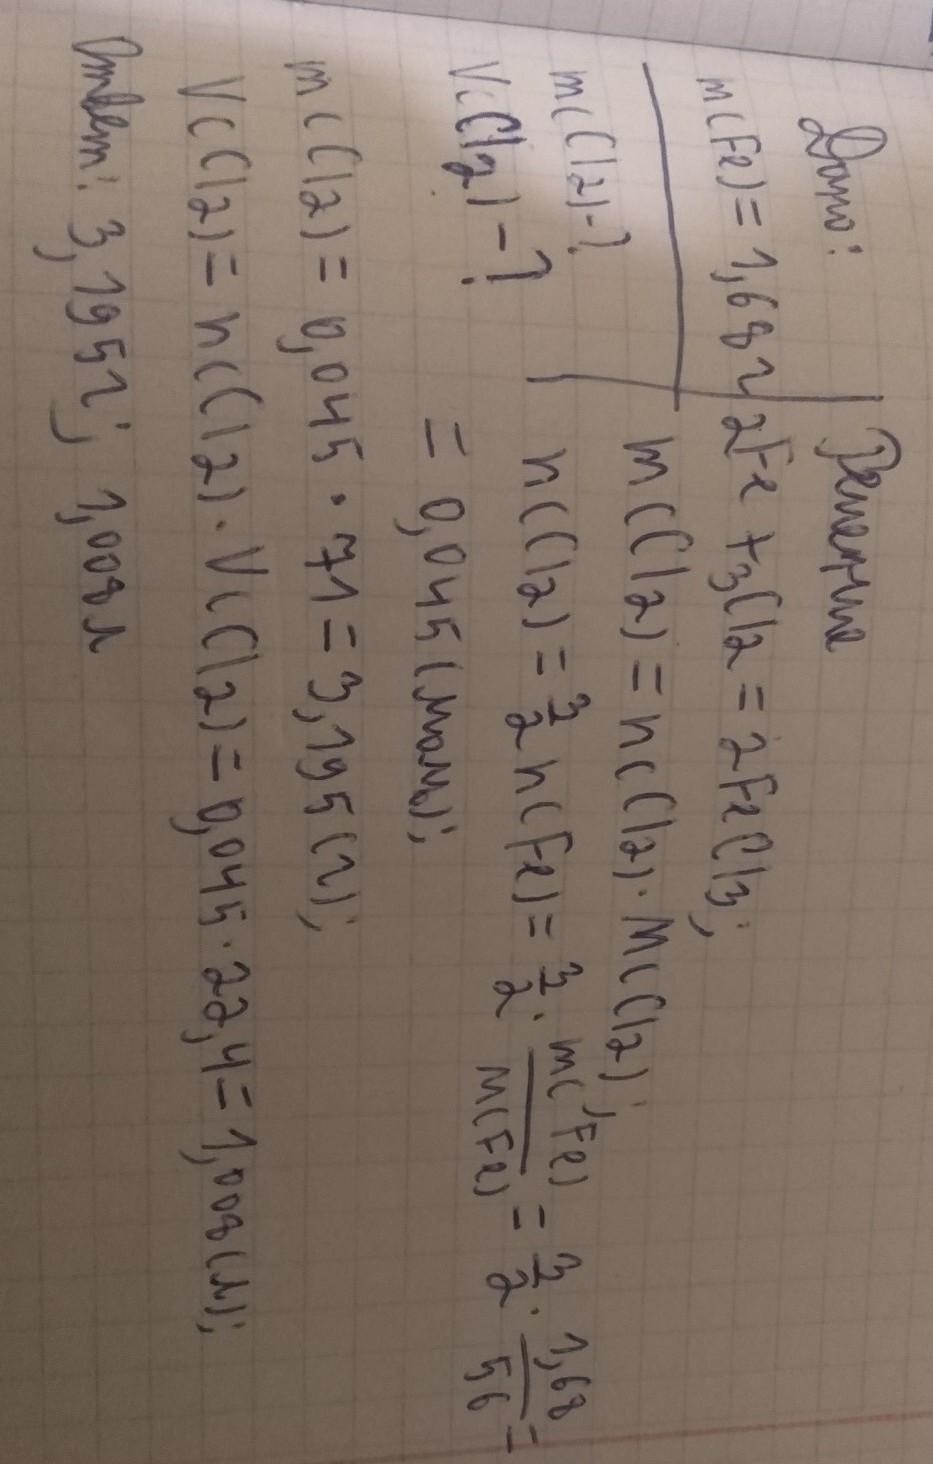 Дано:
m(Fe) = 1,68 г
m(Cl2)-?
V(Cl2)-?
Решение
2Fe + 3Cl2 = 2FeCl3;
m(Cl2) = n(Cl2) · M(Cl2);
n(Cl2) = 3/2 n(Fe) = 3/2 · m(Fe)/M(Fe) = 3/2 · 1,68/56 =
= 0,045 (моль);
m(Cl2) = 0,045 · 71 = 3,195 (г);
V(Cl2) = n(Cl2) · V(Cl2) = 0,045 · 22,4 = 1,008 (л);
Ответ: 3,195 г; 1,008 л